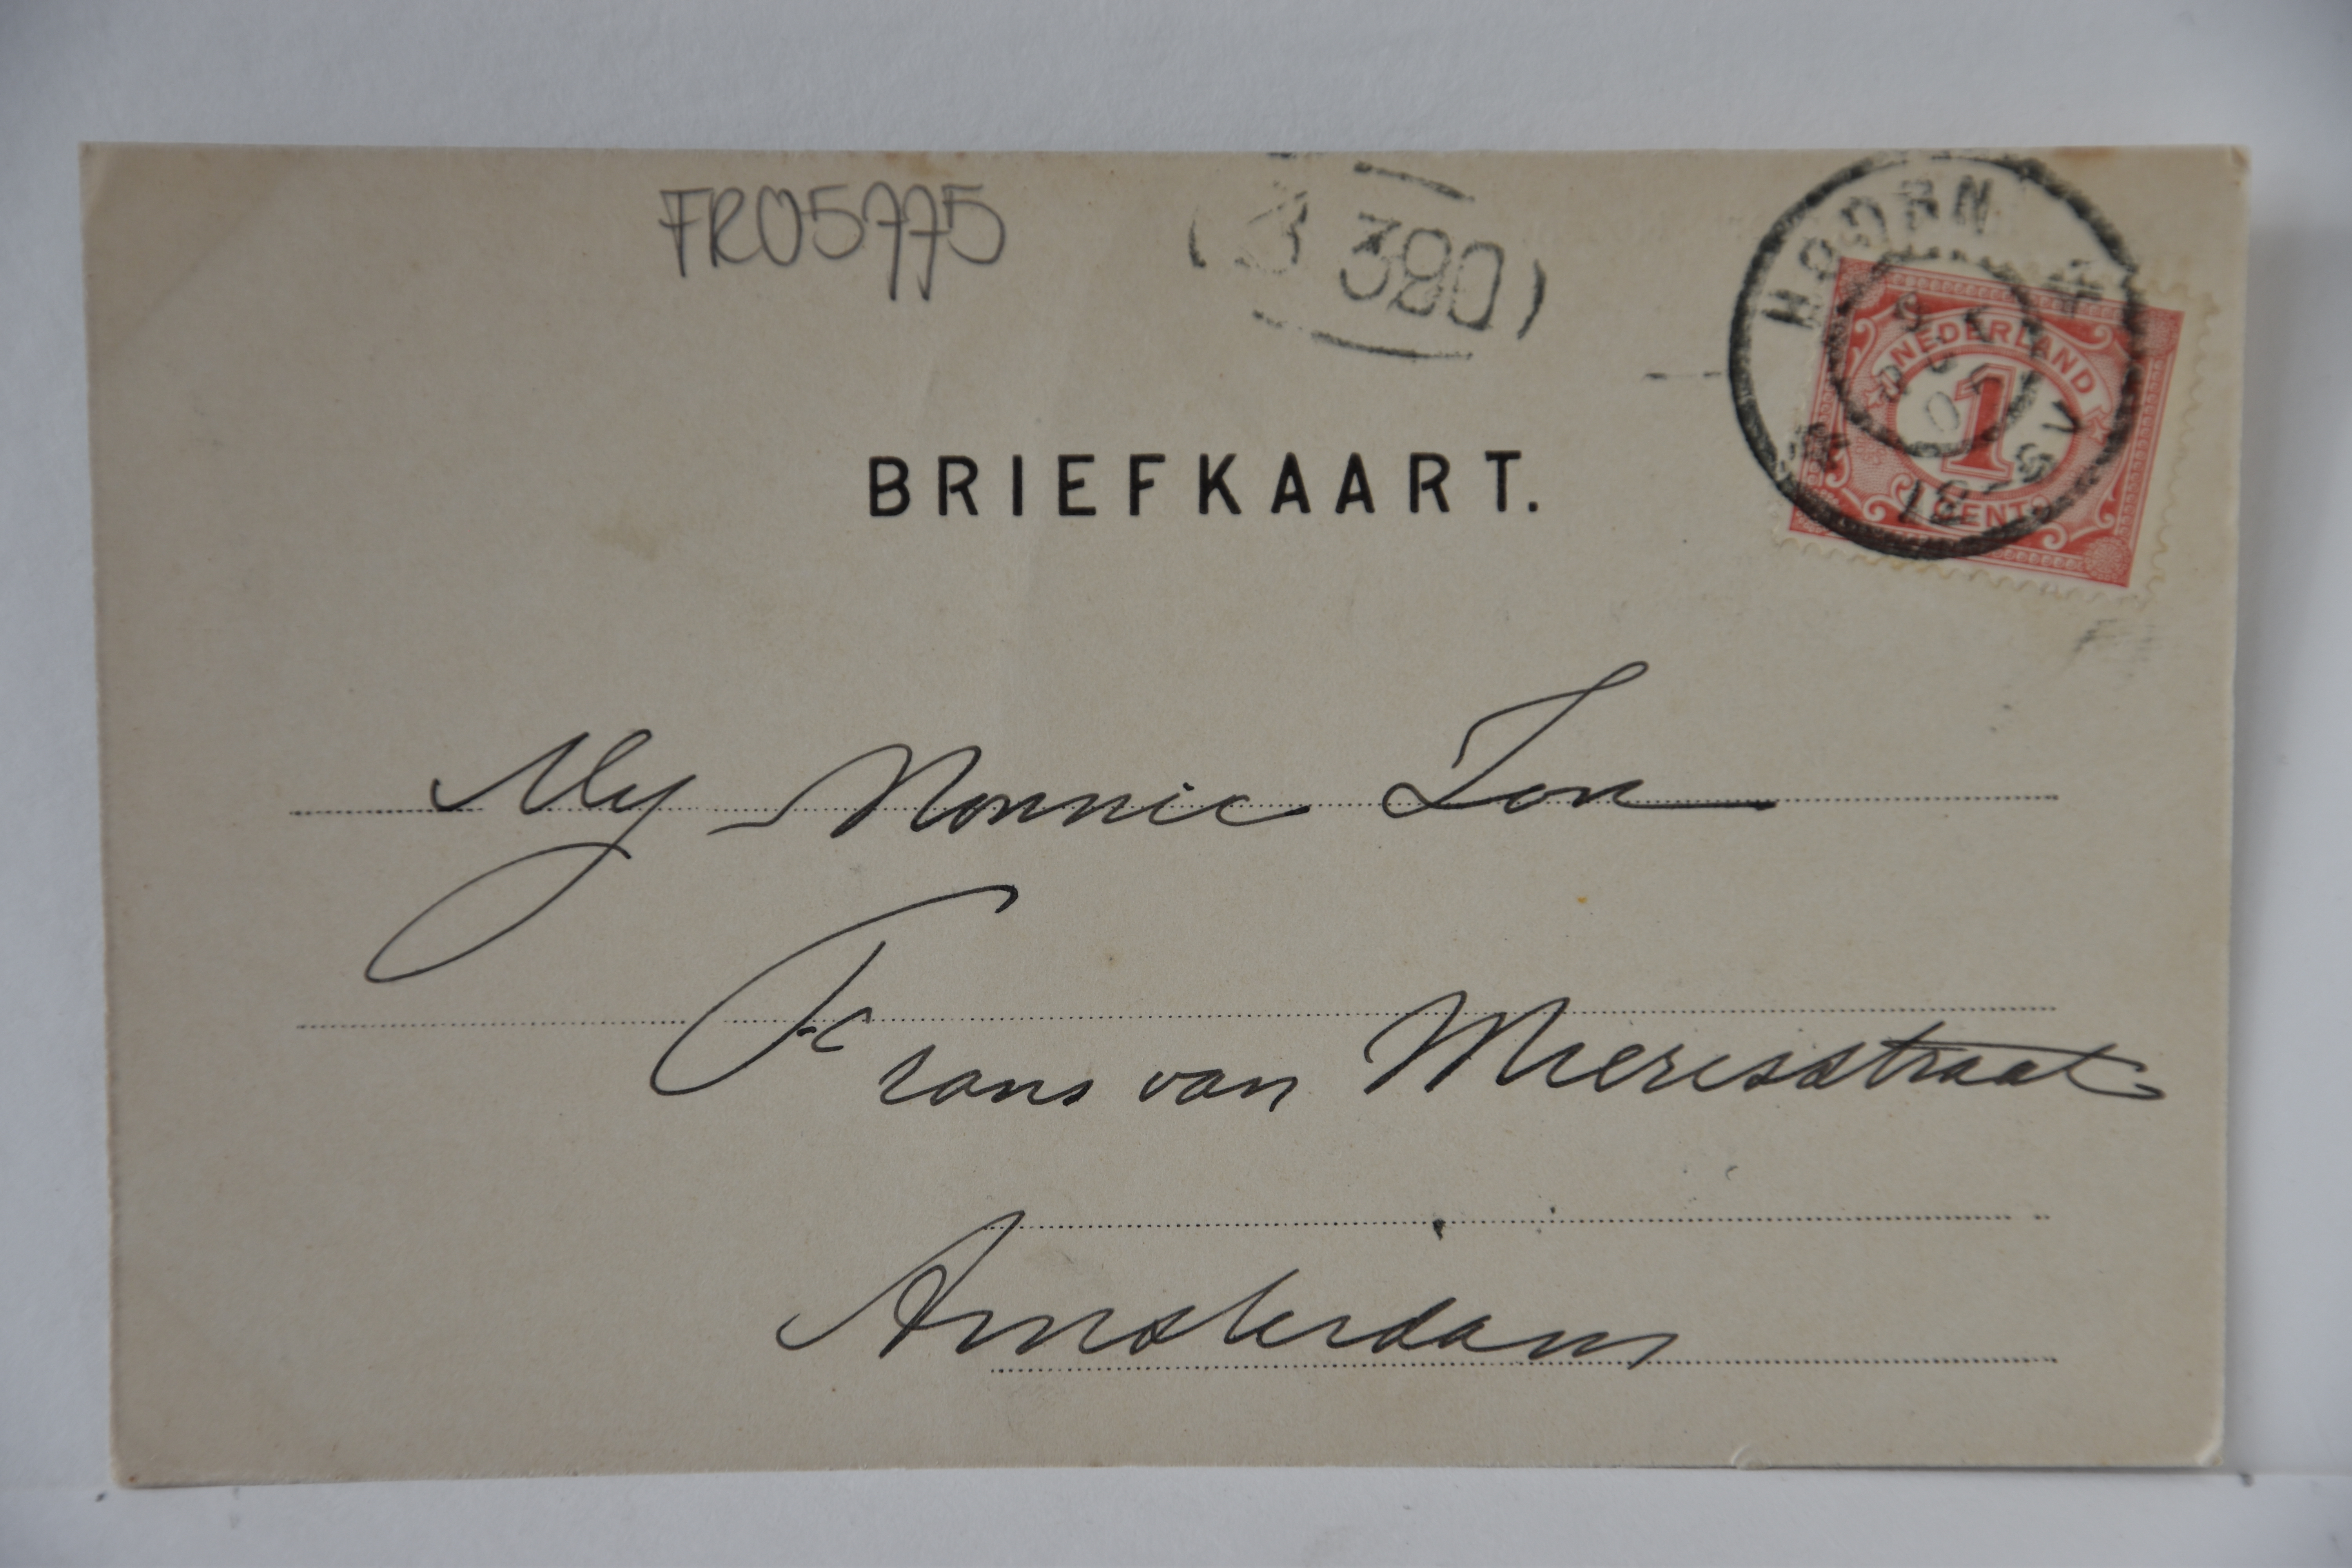 FRO5775
380
HOORN
NEDERLAND
1
CENT
BRIEFKAART.
Mej Nonnie Ton
Frans van Mierisstraat
Amsterdam